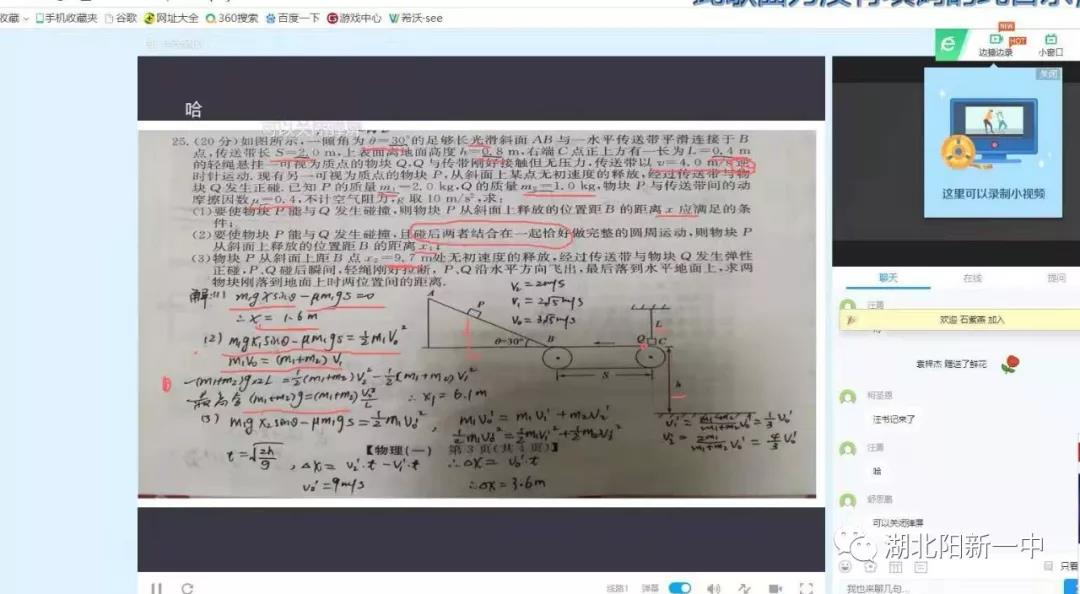 收藏 手机收藏夹 谷歌 网址大全 360搜索 百度一下 游戏中心 希沃-see
NEW
HOT
边播边录 小窗口
关闭
这里可以录制小视频
哈
25.(20分)如图所示,一倾角为θ=30°的足够长光滑斜面AB与一水平传送带平滑连接于B
点,传送带长S=2.0 m,上表面离地面高度h=0.8 m,右端C点正上方有一长为L=0.4 m
的轻绳悬挂一可视为质点的物块Q,Q与传带刚好接触但无压力,传送带以v=4.0 m/s逆
时针运动.现有另一可视为质点的物块P,从斜面上某点无初速度的释放,经过传送带与物
块Q发生正碰.已知P的质量m₁=2.0 kg,Q的质量m₂=1.0 kg,物块P与传送带间的动
摩擦因数μ=0.4,不计空气阻力,g取10 m/s²,求:
(1)要使物块P能与Q发生碰撞,则物块P从斜面上释放的位置距B的距离x应满足的条
件;
(2)要使物块P能与Q发生碰撞,且碰后两者结合在一起恰好做完整的圆周运动,则物块P
从斜面上释放的位置距B的距离x₁;
(3)物块P从斜面上距B点x₂=9.7 m处无初速度的释放,经过传送带与物块Q发生弹性
正碰,P、Q碰后瞬间,轻绳刚好拉断,P、Q沿水平方向飞出,最后落到水平地面上,求两
物块刚落到地面上时两位置间的距离.
解:(1) m₁gxsinθ-μm₁gs=0
∴x=1.6m
(2) m₁gx₁sinθ-μm₁gs=½m₁v₀²
m₁v₀=(m₁+m₂)v₁
-(m₁+m₂)g×2L=½(m₁+m₂)v₂²-½(m₁+m₂)v₁²
最高点 (m₁+m₂)g=(m₁+m₂)v₂²/L ∴x₁=6.1m
(3) m₁gx₂sinθ-μm₁gs=½m₁v₀'²
m₁v₀'=m₁v₁'+m₂v₂'
½m₁v₀'²=½m₁v₁'²+½m₂v₂'²
t=√(2h/g), Δx=v₂'·t-v₁'·t ∴Δx=v₀'·t
v₀'=9m/s ∴Δx=3.6m
v₂=2m/s
v₁=2√5m/s
v₀=3√5m/s
A P θ=30° B Q C L S h
v₁'=(m₁-m₂)/(m₁+m₂)v₀'=⅓v₀'
v₂'=2m₁/(m₁+m₂)v₀'=4/3v₀'
【物理(一) 第3页(共4页)】
聊天 在线 提问
汪勇
欢迎 石紫燕 加入
袁梓杰 赠送了鲜花
汪书记来了
汪勇
哈
可以关闭弹屏
湖北阳新一中
只看
线路1 弹幕
我也来聊几句...